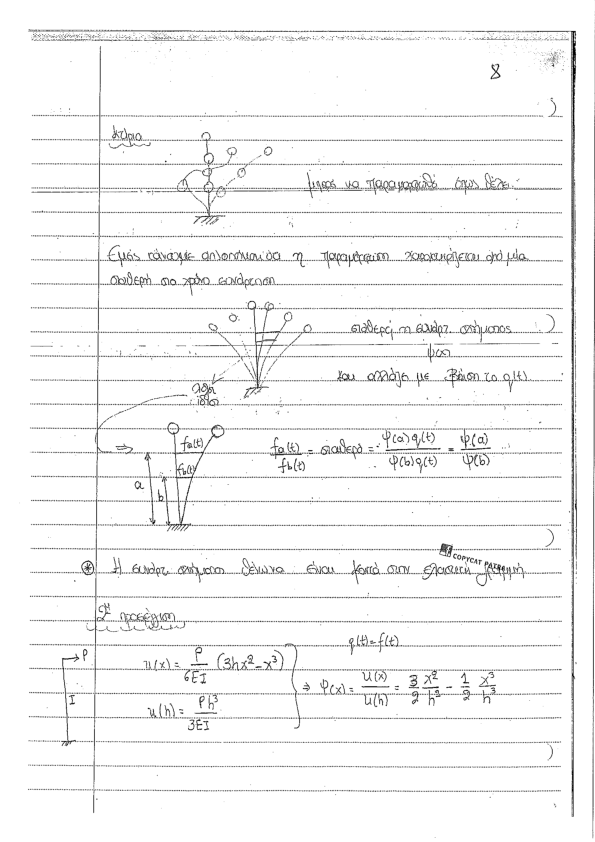 8
κτίριο
μπορεί να παραμορφωθεί όπως θέλει.
Εμείς κάνουμε απλοποίηση ότι η παραμόρφωση χαρακτηρίζεται από μία
σταθερή στο χρόνο συνάρτηση
σταθερή η συνάρτ. σχήματος
ψ(x)
και αλλάζει με βάση το q(t)
λόγοι
ίδιοι
⇒ fa(t)
fb(t)
a
b
fa(t)/fb(t) = σταθερό = ψ(a)q(t)/ψ(b)q(t) = ψ(a)/ψ(b)
COPYCAT
⊛ Η συνάρτ. σχήματος θέλω να είναι κοντά στην ελαστική γραμμή
2η προσέγγιση
q(t)=f(t)
P
I
u(x) = P/6EI (3hx² - x³)
u(h) = Ph³/3EI
⇒ ψ(x) = u(x)/u(h) = 3/2 x²/h² - 1/2 x³/h³